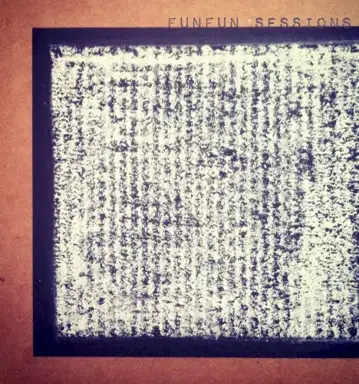 FUNFUN SESSIONS